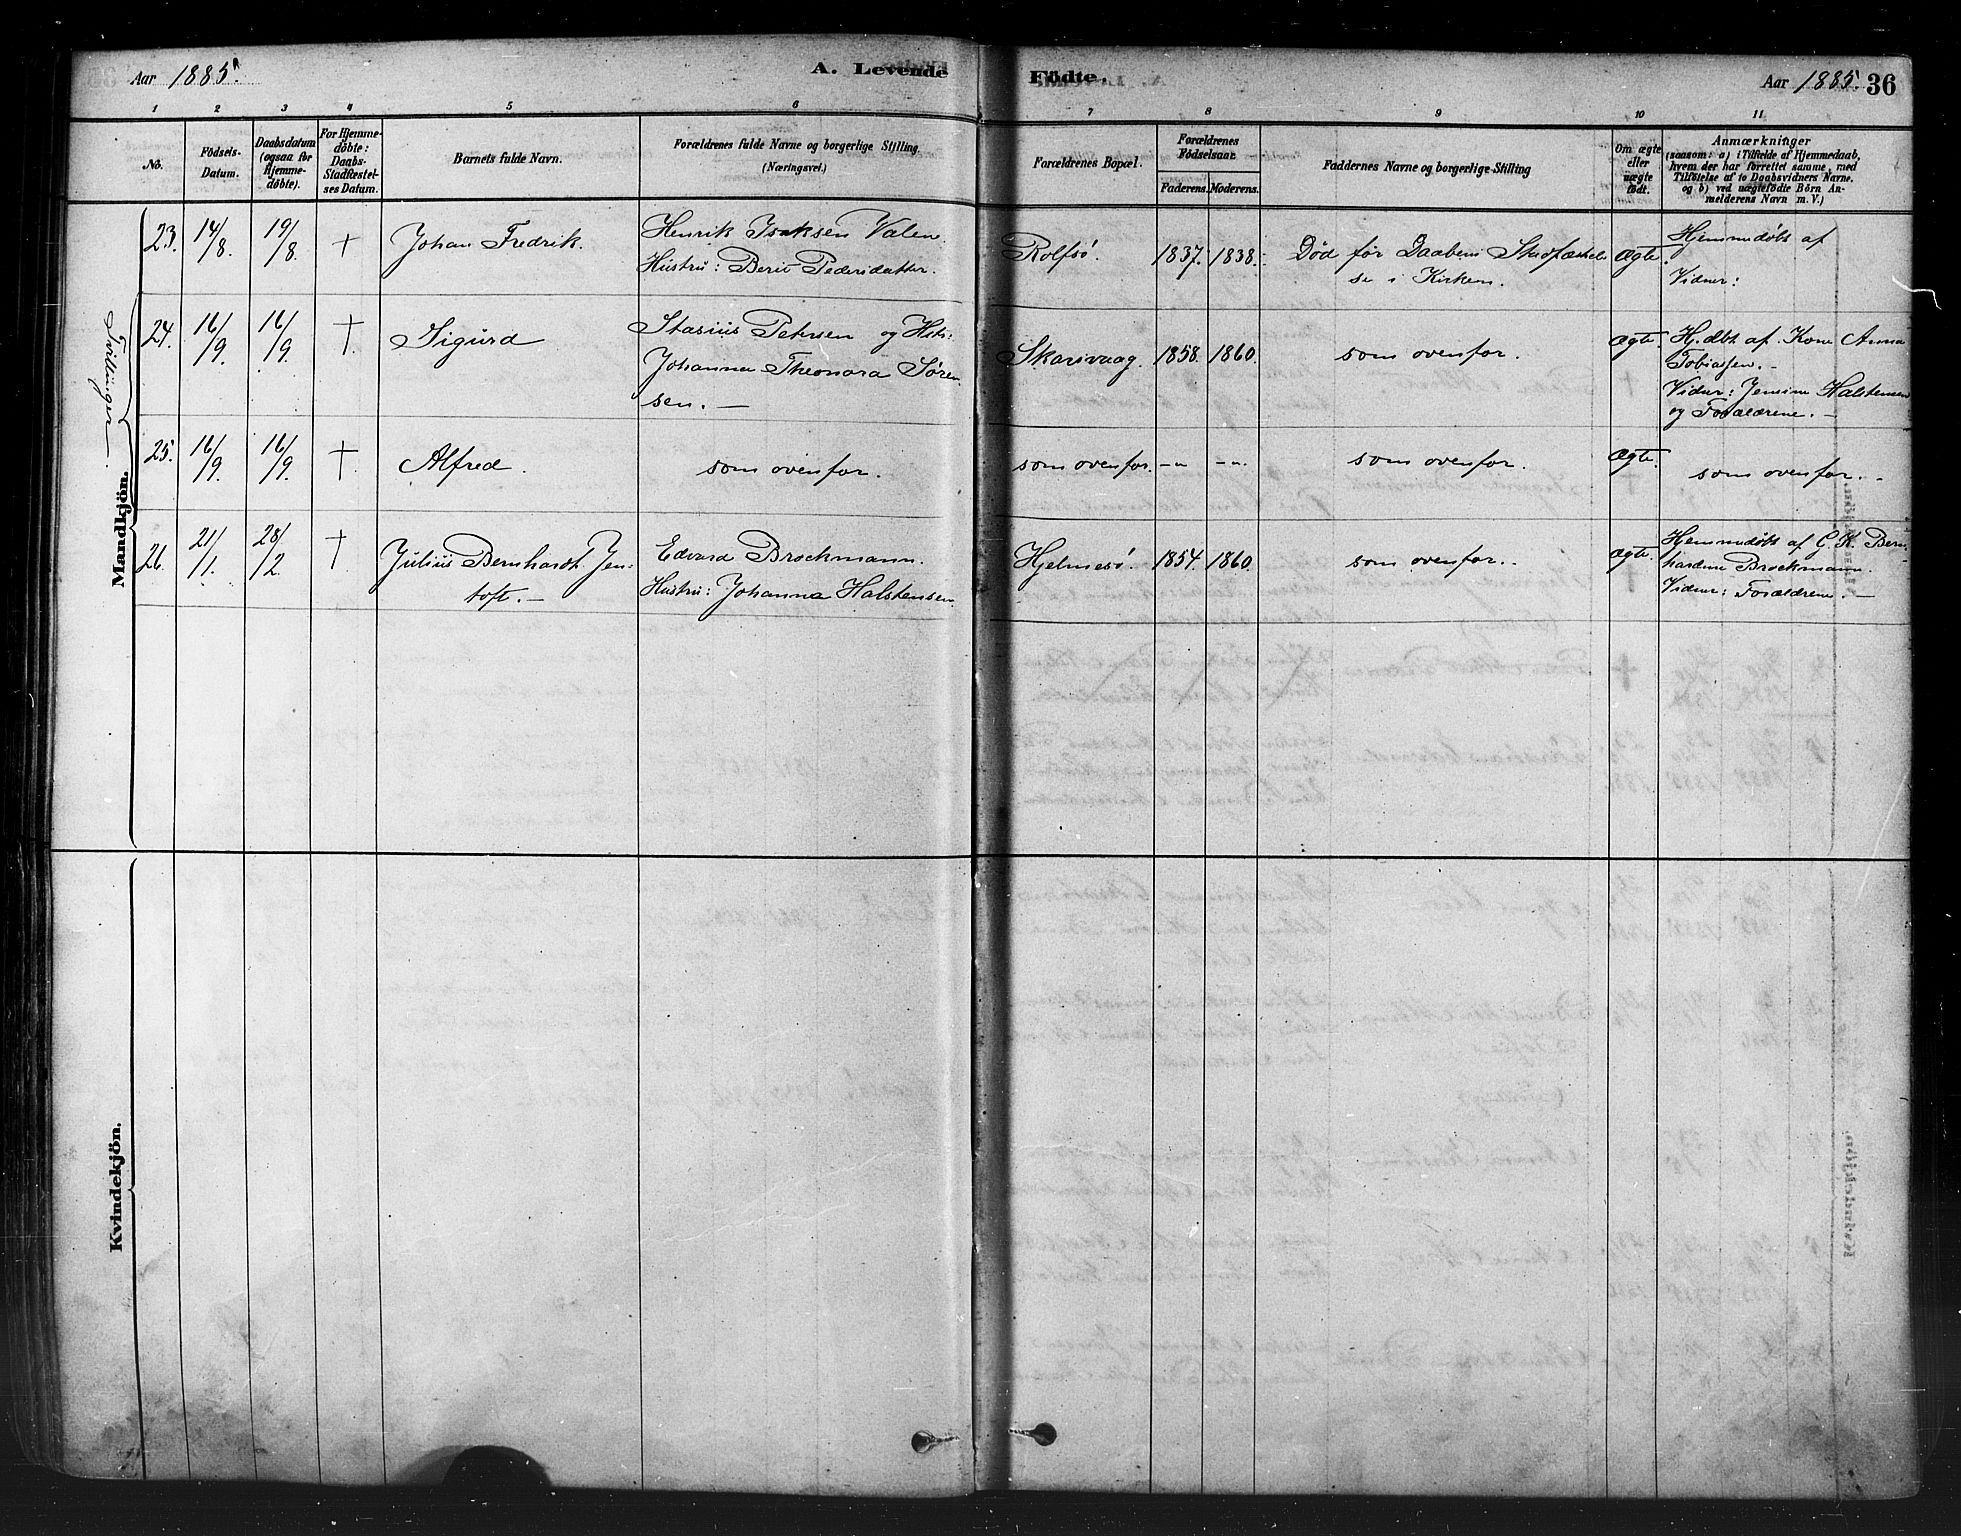 Aar 1885. A. Levende Födte. Aar 1885. 36
1 2 3 4 5 6 7 8 9 10 11
No.
Födsels-
Datum.
Daabsdatum
(ogsaa for
Hjemme-
döbte).
For Hjemme-
döbte:
Daabs-
Stadfæstel-
ses Datum.
Barnets fulde Navn.
Forældrenes fulde Navne og borgerlige Stilling
(Næringsvei.)
Forældrenes Bopæl.
Forældrenes
Födselsaar.
Faderens. Moderens.
Faddernes Navne og borgerlige Stilling
Om ægte
eller
uægte
födt.
Anmærkninger
(saasom: a) i Tilfælde af Hjemmedaab,
hvem der har forrettet samme, med
Tilföielse af to Daabsvidners Navne,
og b) ved uægtefödte Börn An-
melderens Navn m. V.)
Mandkjön.
Tvillinger
23. 14/8 19/8 + Johan Fredrik.
Henrik Isaksen Valen
Hustru: Berit Pedersdatter.
Rolfsö. 1837. 1838.
Död før Daabens Stadfæstel
se i Kirken.
Ægte.
Hjemmedøbt af
Vidner:
24. 16/9 16/9 + Sigurd
Stasius Petersen og Hstr.
Johanna Theonora Sören-
sen. —
Skarsvaag. 1858. 1860.
som ovenfor.
Ægte.
Hj.dbt. af Kone Anna
Tobiassen. —
Vidner: Jensine Halstensen
og Forældrene. —
25. 16/9 16/9 + Alfred.
som ovenfor.
som ovenfor. -"- -"-
som ovenfor.
Ægte.
som ovenfor. -
26. 21/1 28/2 + Julius Bernhardt Jen-
toft. —
Edvard Brockmann.
Hustru: Johanna Halstensen
Hjelmesö. 1854. 1860.
som ovenfor.
Ægte.
Hjemmedøbt af G. K. Bern-
hardine Brockmann.
Vidner: Forældrene. —
Kvindekjön.